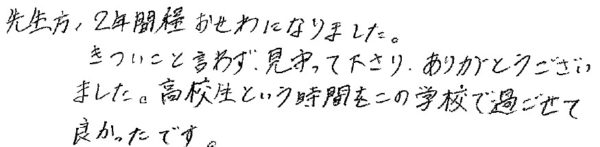 先生方、2年間程おせわになりました。
きついこと言わず、見守って下さり、ありがとうござい
ました。高校生という時間をこの学校で過ごせて
良かったです。